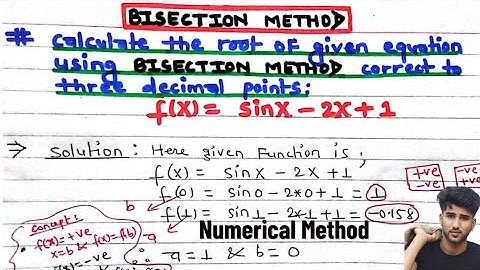 BISECTION METHOD
# Calculate the root of given equation
using BISECTION METHOD correct to
three decimal points;
f(X) = sinX - 2X + 1
→ Solution: Here given Function is;
f(X) = sinX - 2X + 1
+ve -ve
-ve +ve
f(0) = sin0 - 2*0 + 1 = 1
b
f(1) = sin1 - 2*1 + 1 = -0.158
a
Concept:
f(X) = +ve
x=b & f(X)=f(b)
f(X) = -ve
∴ a = 1 & b = 0
Numerical Method